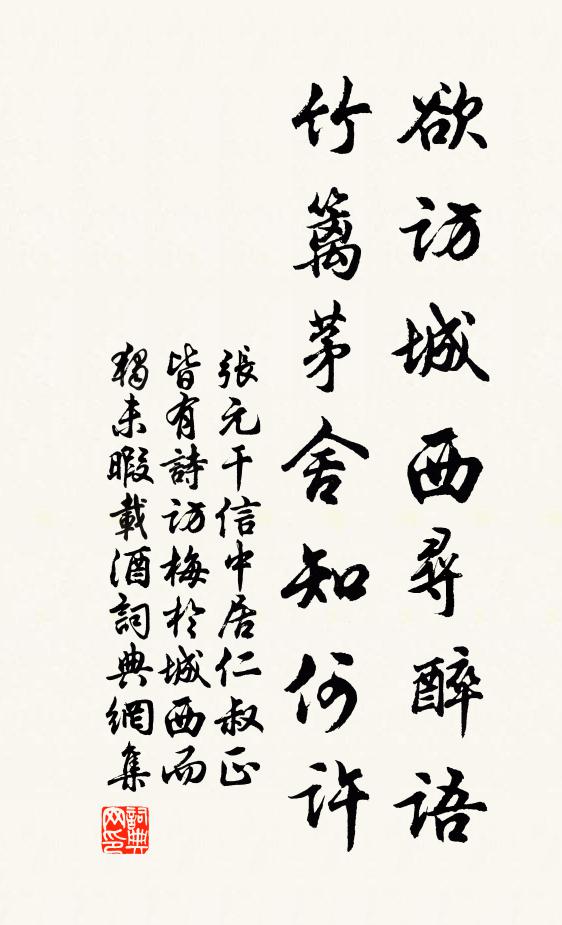 欲訪城西尋醉語
竹籬茅舍知何許
張元干信中居仁叔正
皆有詩訪梅於城西而
獨未暇載酒詞典網集
詞典
网印